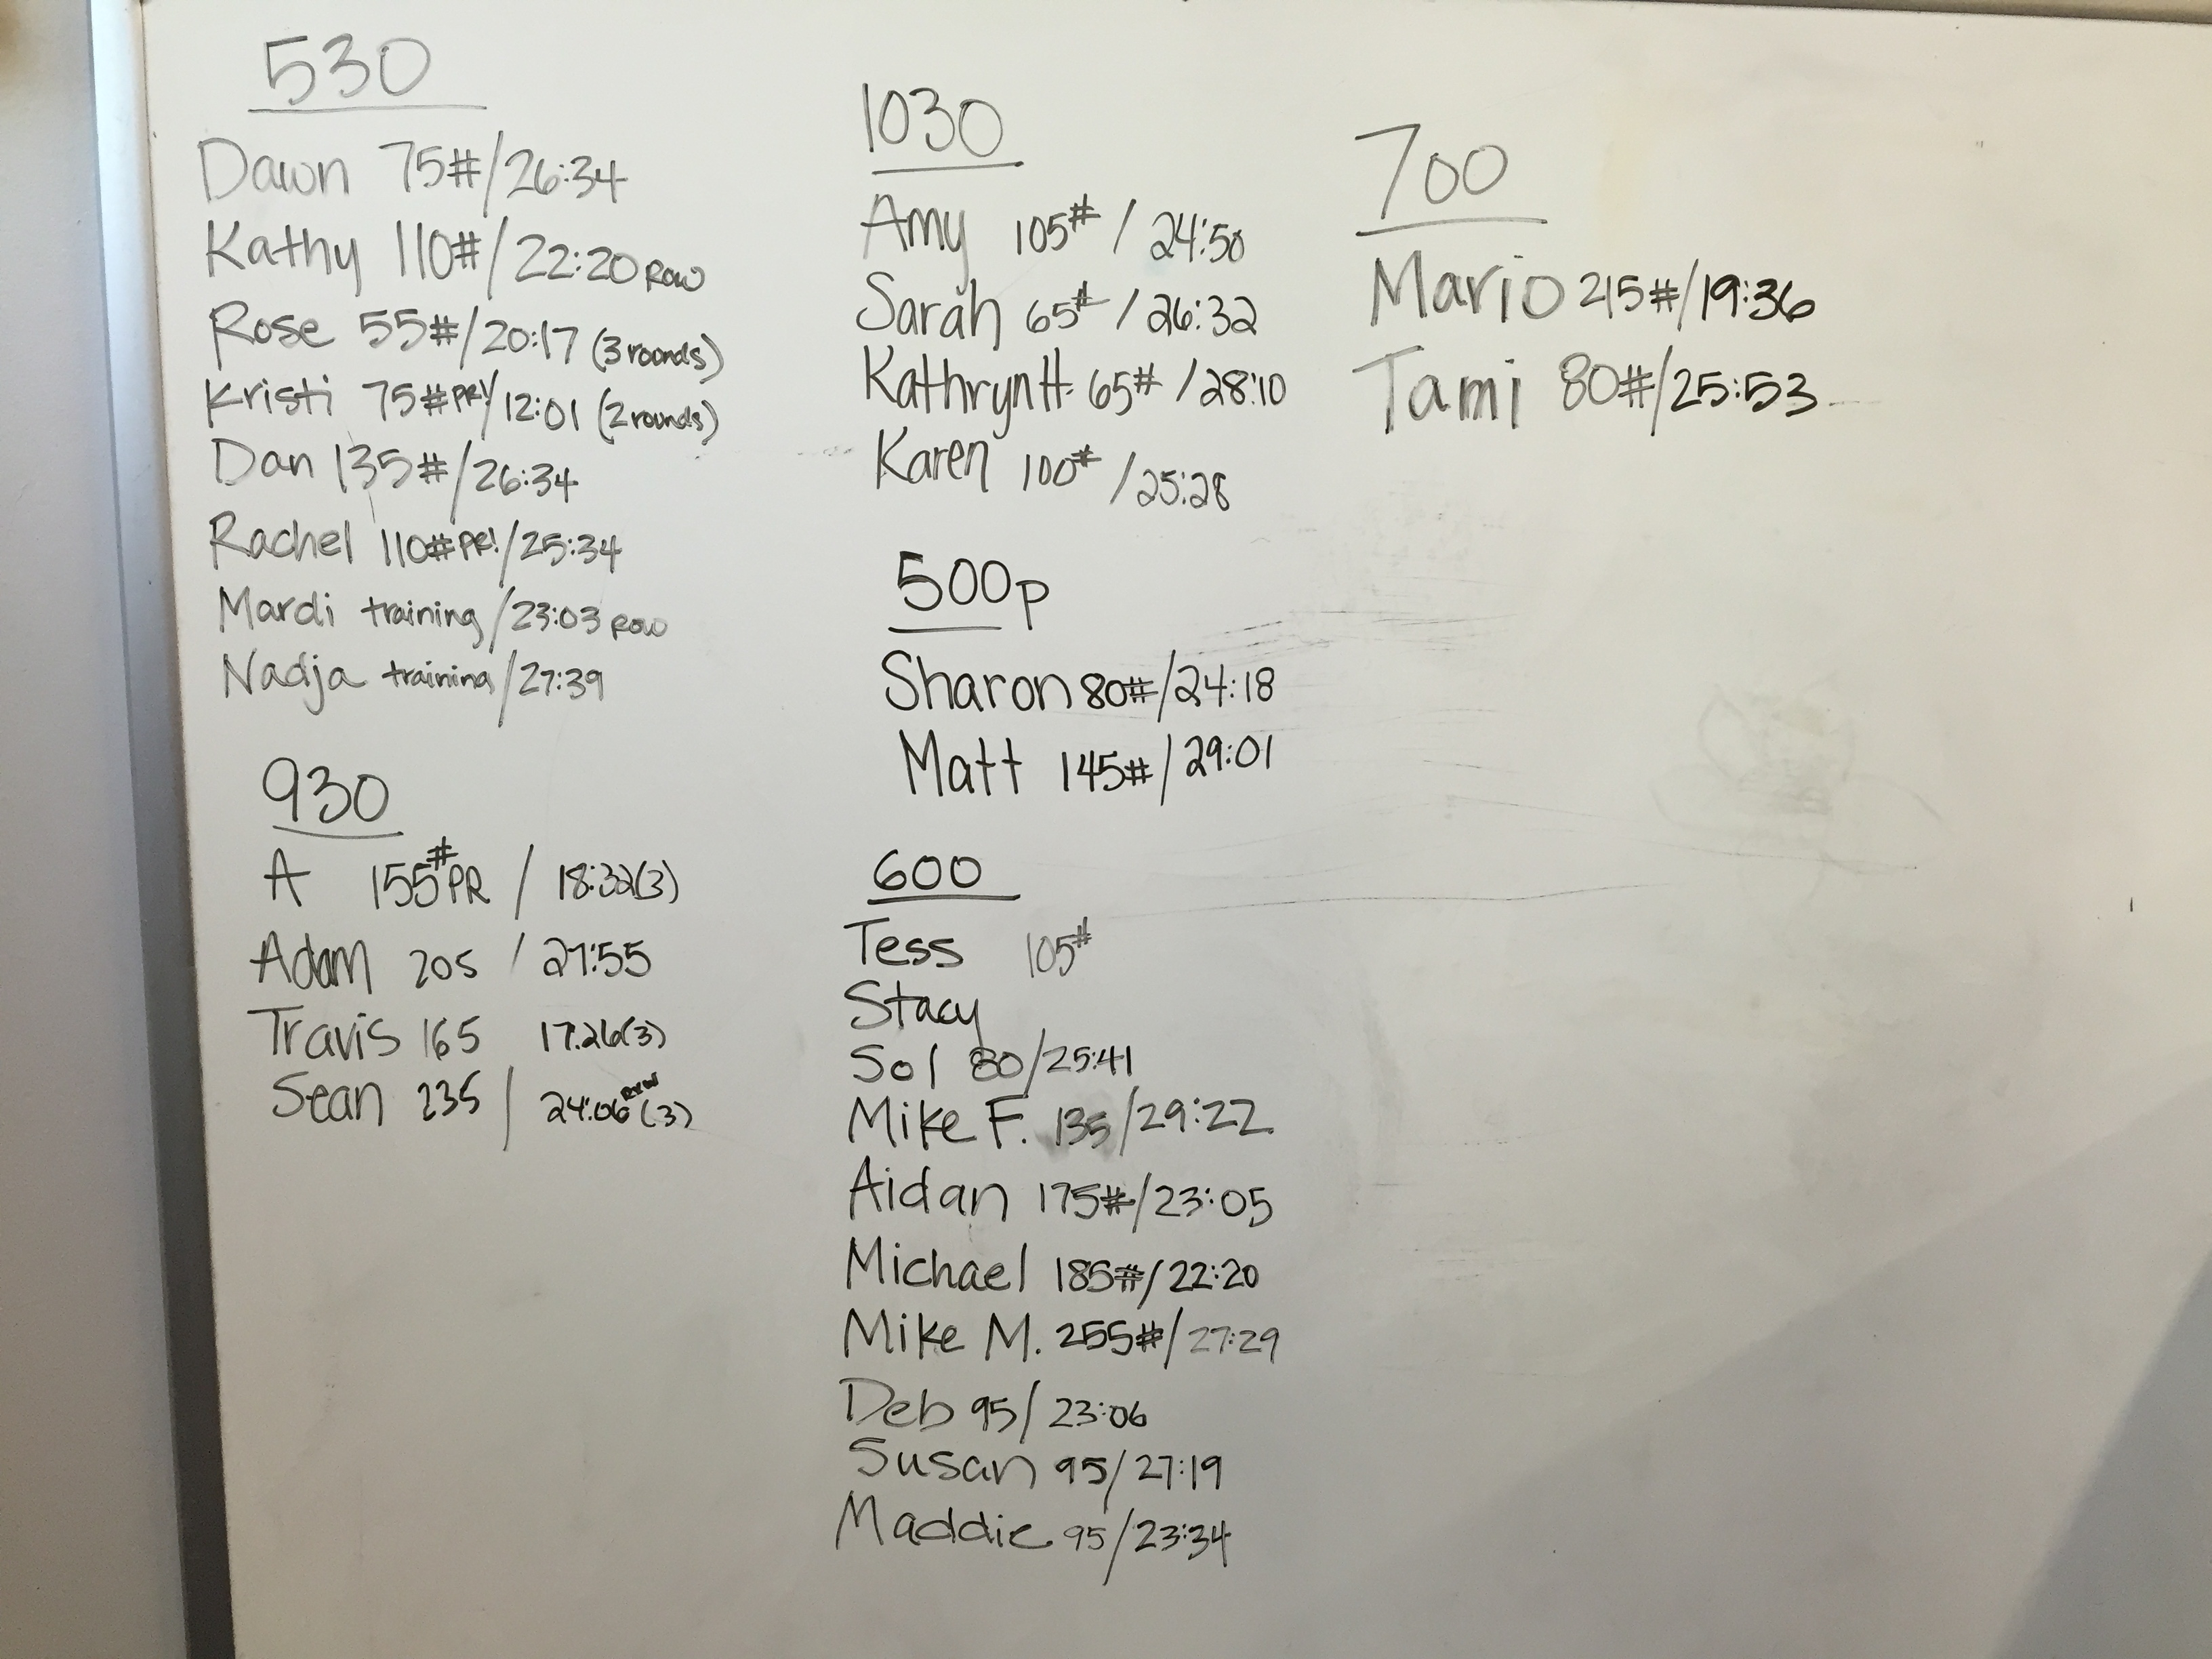 530
Dawn 75#/26:34
Kathy 110#/22:20 Row
Rose 55#/20:17 (3 rounds)
Kristi 75# PR!/12:01 (2 rounds)
Dan 135#/26:34
Rachel 110# PR!/25:34
Mardi training/23:03 Row
Nadja training/27:39
930
A 155# PR / 18:32(3)
Adam 205 / 27:55
Travis 165 17:26(3)
Sean 235 / 24:06 row (3)
1030
Amy 105# / 24:50
Sarah 65# / 26:32
Kathryn H. 65# / 28:10
Karen 100# / 25:28
500p
Sharon 80#/24:18
Matt 145#/29:01
600
Tess 105#
Stacy
Sol 80/25:41
Mike F. 135/29:22
Aidan 175#/23:05
Michael 185#/22:20
Mike M. 255#/27:29
Deb 95/23:06
Susan 95/27:19
Maddie 95/23:34
700
Mario 215#/19:36
Tami 80#/25:53